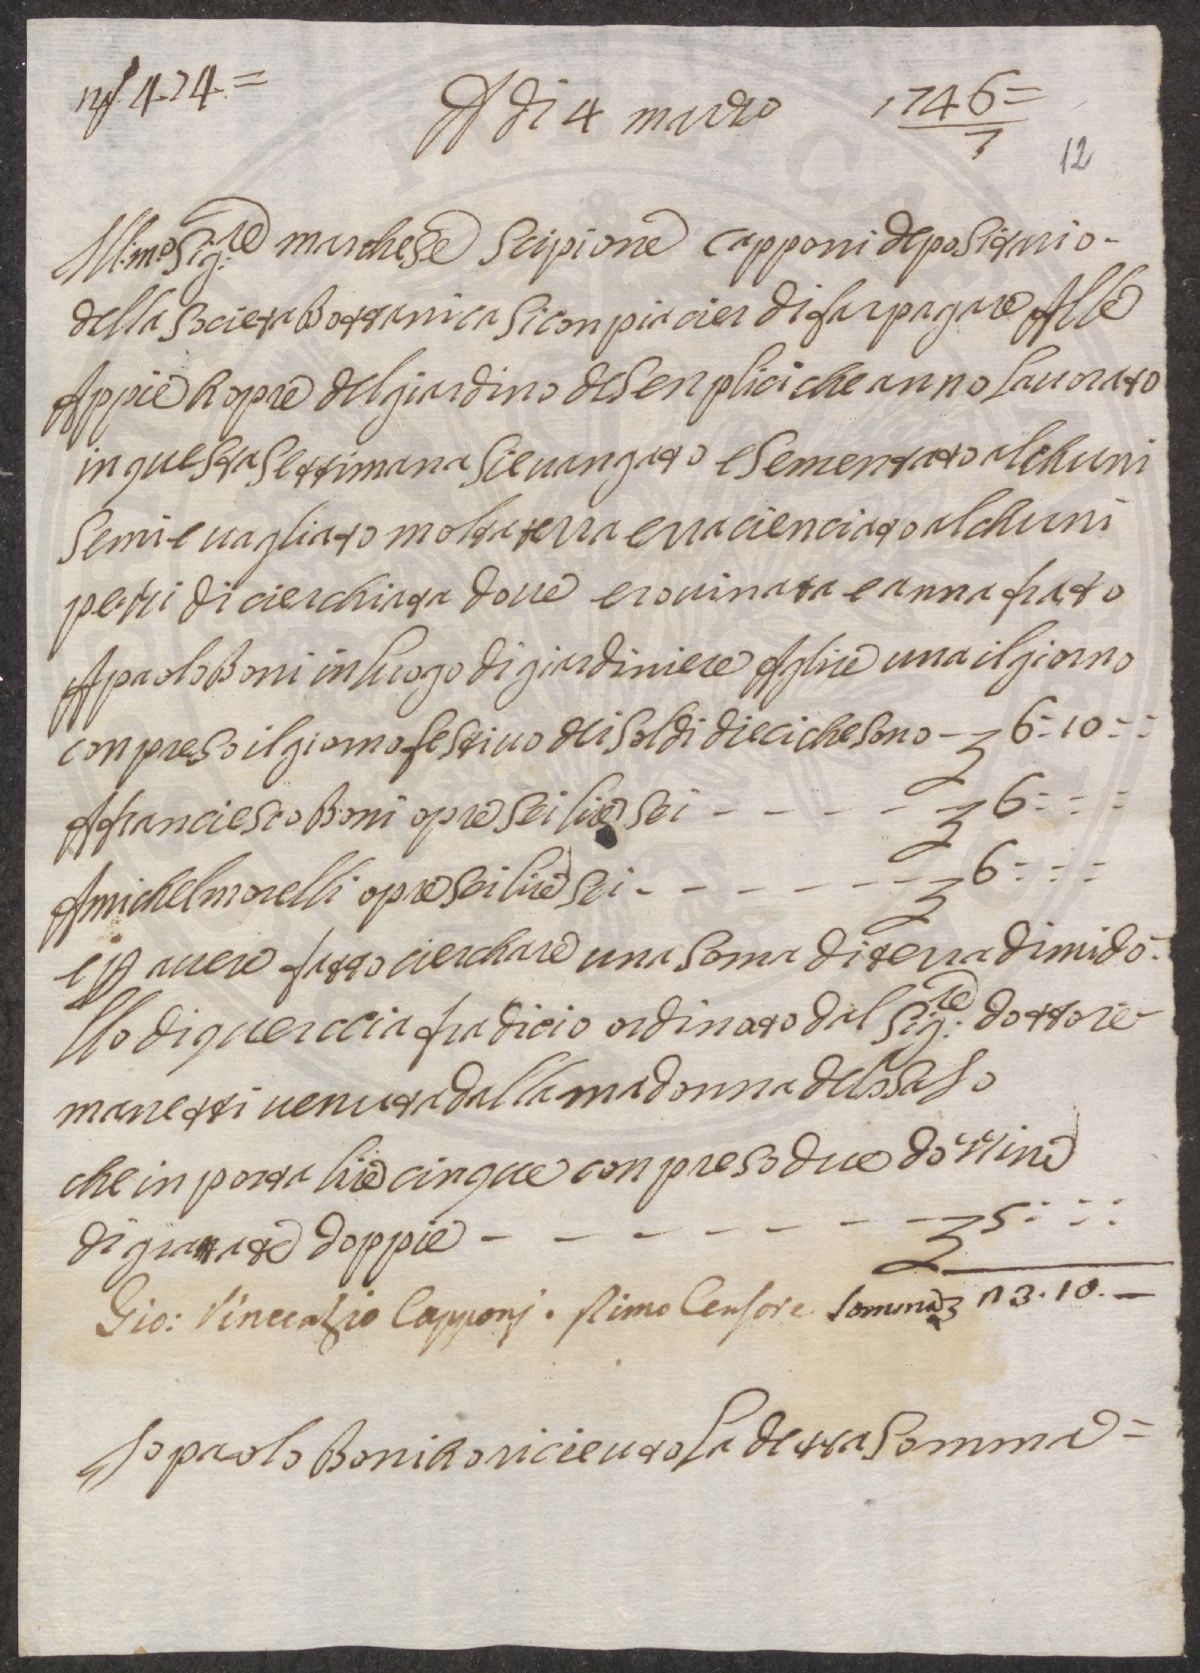 n.º 424 =
A di 4 marzo 1746 =
7
12
Ill:mo Sig:re marchese Scipione capponi depositario -
della Societa Bottanica si conpiacier di far pagare Alle
Appie hopre del giardino de Senplici che anno lauorato
in questa settimana si e uangato e sementato alchuni
semi e uagliato molta terra e racienciato alchuni
pezzi di cierchiata doue e rouinata e annafiato
A paolo Boni in luogo di giardiniere A lire una il giorno
conpreso il giorno festiuo dei soldi dieci che sono - £ 6 = 10 = =
A franciesco Boni opre sei lire sei - - - - - £ 6 = = =
A michel morelli opre sei lire sei - - - - - - - £ 6 = = =
e p auere fatto cierchare una soma di terra di mido-
llo di querccia fradicio ordinato dal Sig:re dottore
manetti uenuta dalla madonna del saso
che inporta lire cinque conpreso due dozzine
di granate doppie - - - - - - - - £ 5 = = =
Gio: Vincenzio Capponi. Primo Censore Somma £ 23. 10. -
Io paolo Boni ho riceuto la detta somma =